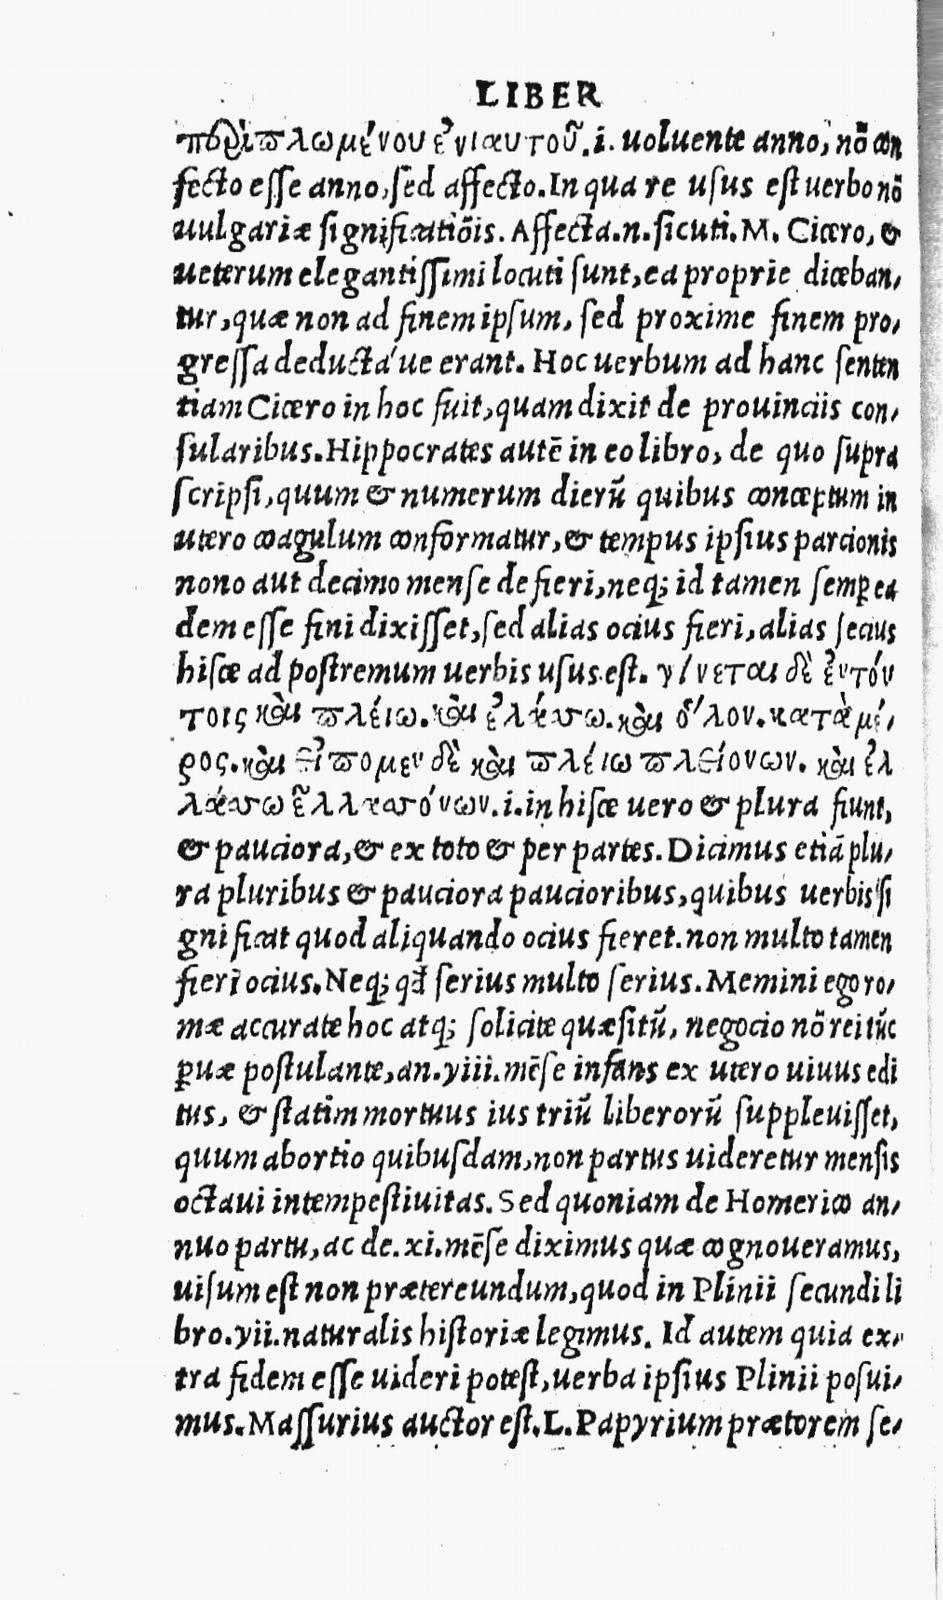 LIBER
περιπλωμένου ἐνιαυτοῦ.i. uoluente anno, nō con
fecto esse anno, sed affecto. In qua re usus est uerbo nō
uulgariæ significatiōis. Affecta.n.sicuti.M. Cicero, &
ueterum elegantissimi locuti sunt, ea proprie diceban-
tur, quæ non ad finem ipsum, sed proxime finem pro-
gressa deducta'ue erant. Hoc uerbum ad hanc senten
tiam Cicero in hoc fuit, quam dixit de prouinciis con-
sularibus. Hippocrates autē in eo libro, de quo supra
scripsi, quum & numerum dierū quibus conceptum in
utero coagulum conformatur, & tempus ipsius parcionis
nono aut decimo mense defieri, neq; id tamen semꝑ ea
dem esse fini dixisset, sed alias ocius fieri, alias secius
hisce ad postremum uerbis usus.est. γίνεται δὲ ἐντόν
τοις καὶ πλείω. καὶ ἐλάσσω. καὶ ὅλον. κατὰ μέ-
ρος. καὶ εἴπομεν δὲ καὶ πλείω πλειόνων. καὶ ἐλ
λάσσω ἐλλασσόνων.i.in hisce uero & plura fiunt,
& pauciora, & ex toto & per partes. Dicimus etiā plu-
ra pluribus & pauciora paucioribus, quibus uerbis si
gnificat quod aliquando ocius fieret. non multo tamen
fieri ocius. Neq; qđ serius multo serius. Memini ego ro-
mæ accurate hoc atq; solicite quæsitū, negocio nō rei tūc
ꝑuæ postulante, an.yiii.mēse infans ex utero uiuus edi
tus, & statim mortuus ius triū liberorū suppleuisset,
quum abortio quibusdam, non partus uideretur mensis
octaui intempestiuitas. Sed quoniam de Homerico an-
nuo partu, ac de.xi.mēse diximus quæ cognoueramus,
uisum est non prætereundum, quod in Plinii secundi li
bro.yii.naturalis historiæ legimus. Id autem quia ex-
tra fidem esse uideri potest, uerba ipsius Plinii posui-
mus. Massurius auctor est. L. Papyrium prætorem se-